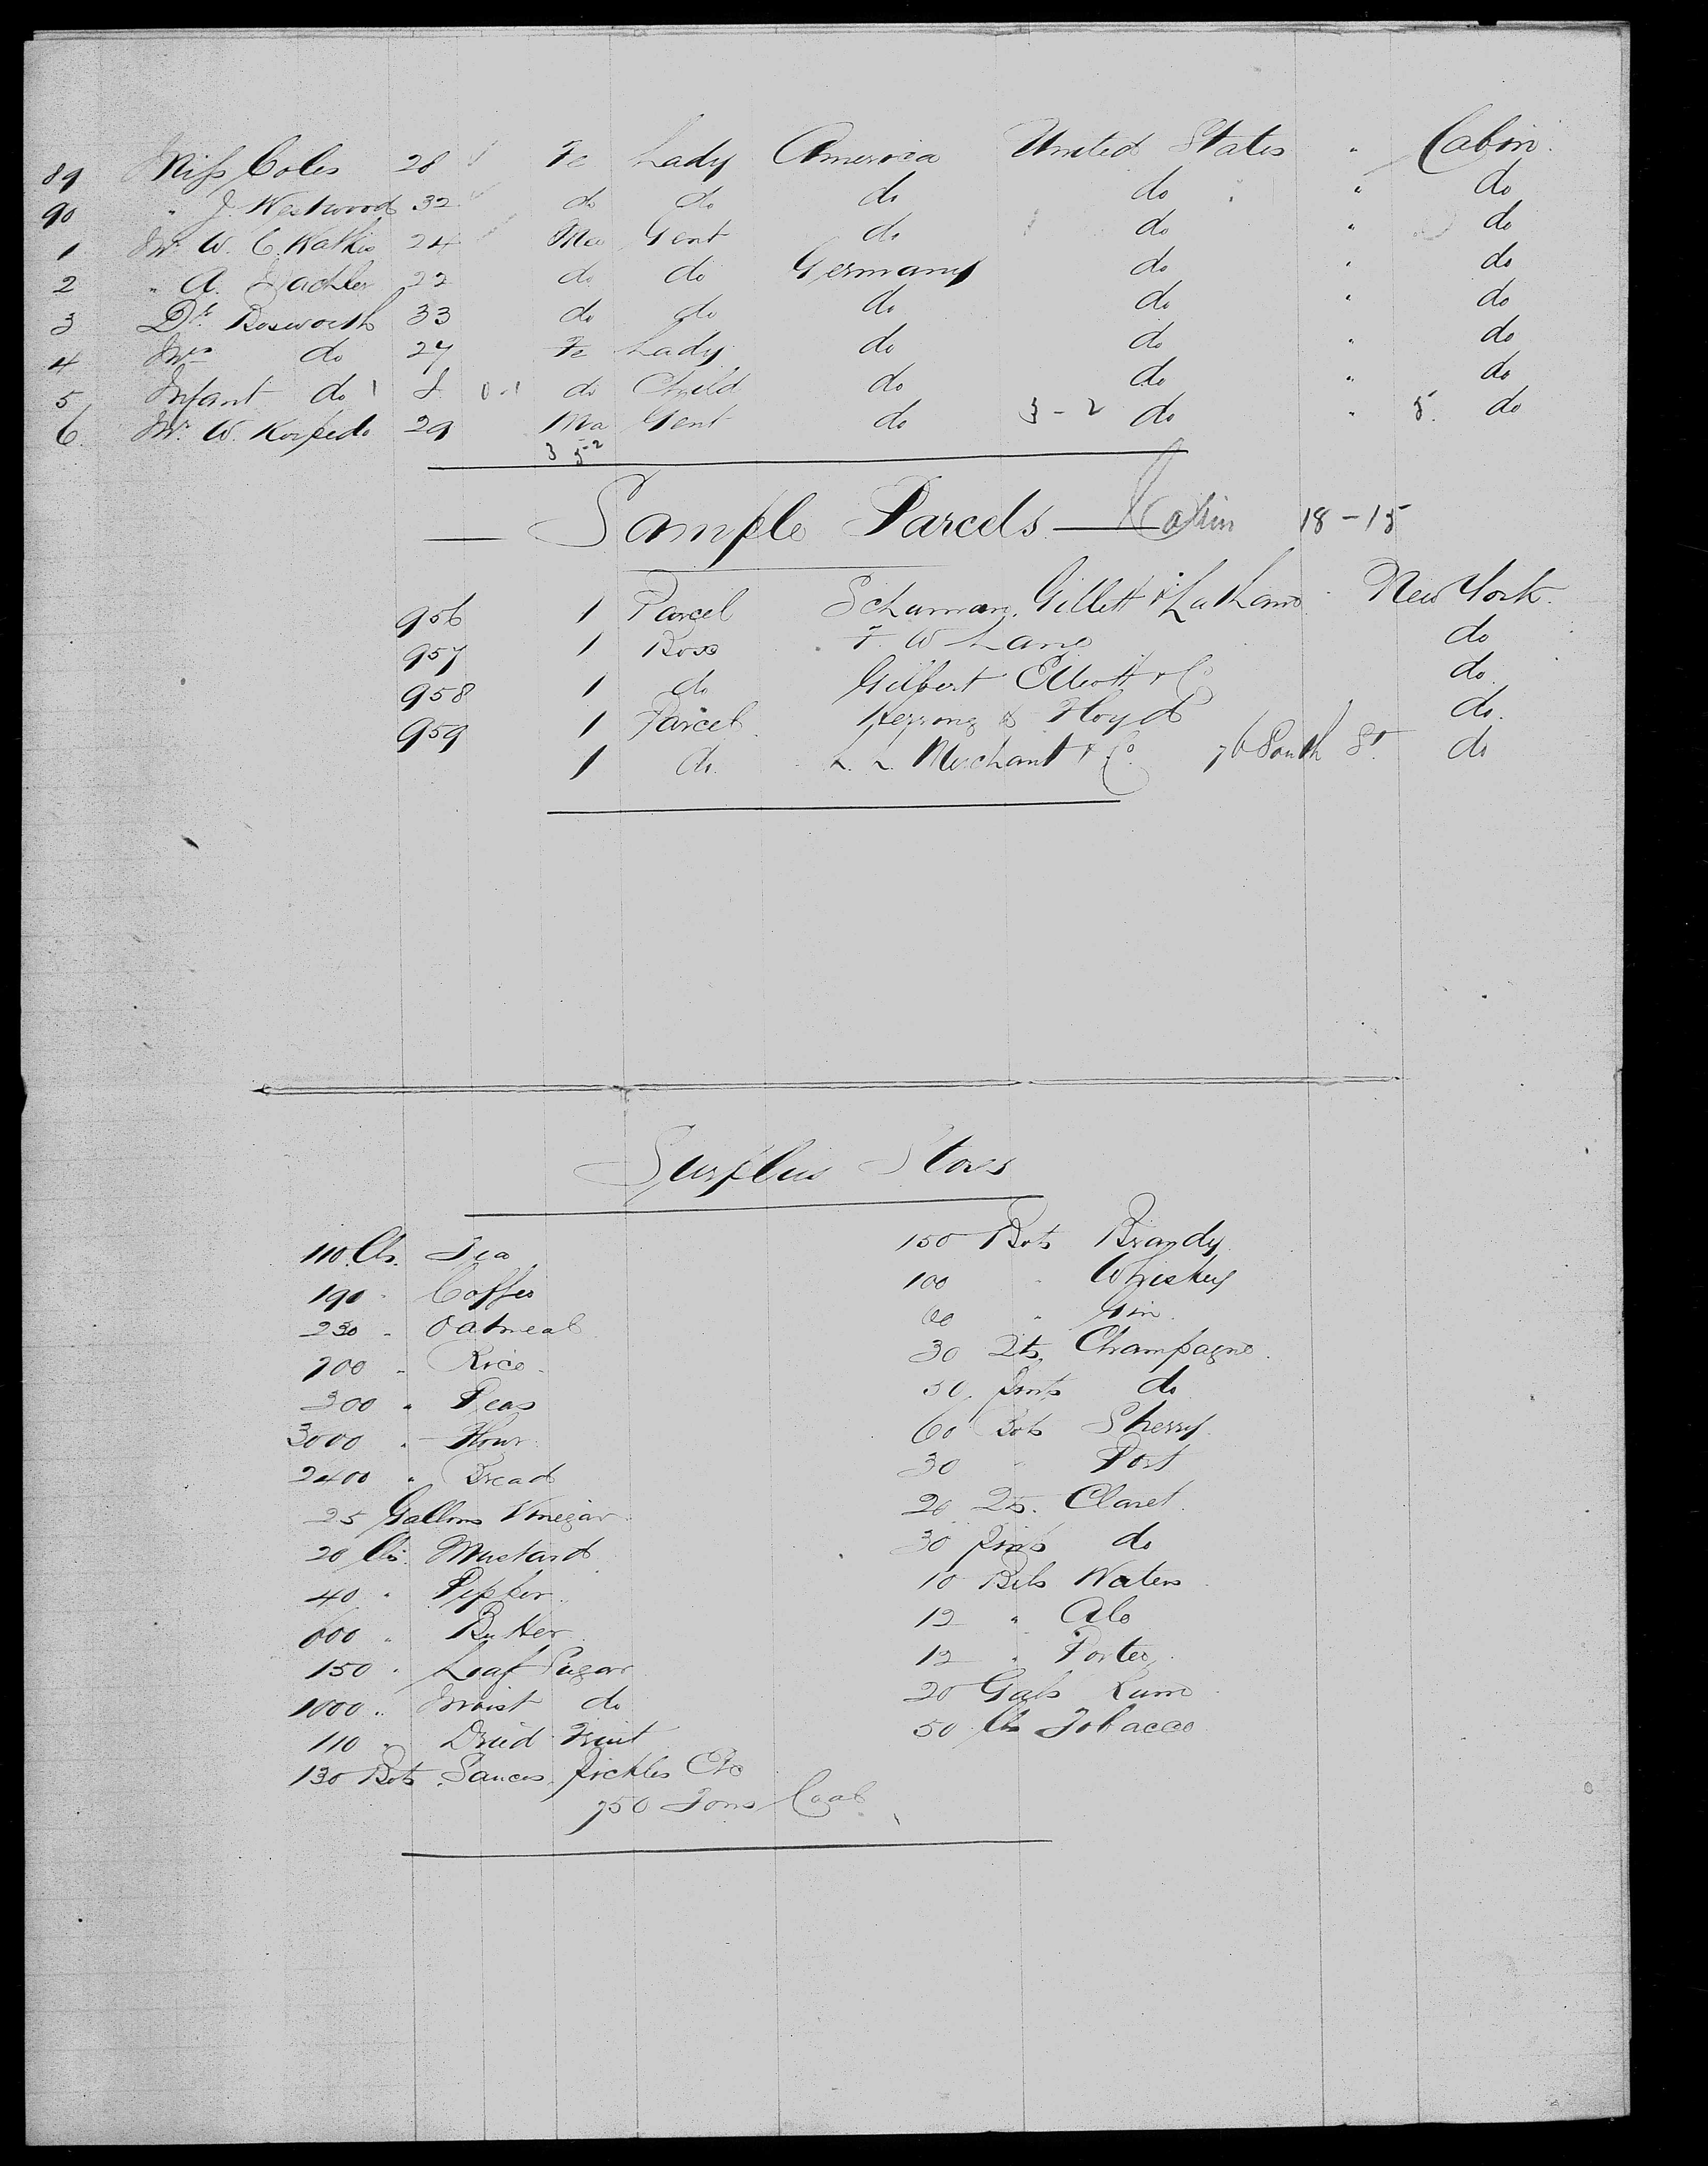 89 Miss Coles 28 Fe Lady America United States " Cabin.
90 " J. Westwood 32 do do do do " do
1 Mr W. C. Watkis 24 Ma Gent do do " do
2 " A. 22 do do Germany do " do
3 Dr. Bosworth 33 do do do do " do
4 Mrs do 27 Fe Lady do do " do
5 Infant do 1 do Child do do " do
6. Mr. W. 29 Ma Gent do 3-2 do " 5. do
3 5-2
— Sample Parcels — Cabin 18-15
956 1 Parcel Schuman, Gillett & Latham New York.
957 1 Box F. W Lane do
958 1 do Gilbert Elliott & Co do.
959 1 Parcel & Floyd do.
1 do. L. L. Merchant & Co. 76 South St. do
Surplus Stores
110 lbs. Tea
190 " Coffee
230 " Oatmeal
700 " Rice
300 " Peas
3000 " Flour
2400 " Bread
25 Gallons Vinegar
20 lbs. Mustard
40 " Pepper
600 " Butter
150 " Loaf Sugar
1000 " Moist do
110 " Dried Fruit
130 Bots Sauces, Pickles Etc
150 Bots Brandy
100 " Whiskey
60 " Gin
30 Qts. Champagne
30 pints do
60 Bots Sherry
30 " Port
20 Qts. Claret
30 pints do
10 Bls Waters
12 " Ale
12 " Porter
20 Gals Rum
50 lbs Tobacco
750 Tons Coal